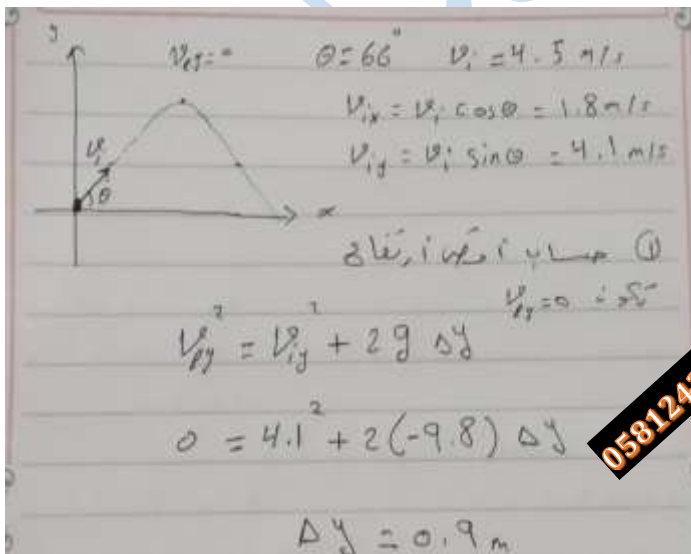 y
v_fy = 0 θ = 66° v_i = 4.5 m/s
v_ix = v_i cosθ = 1.8 m/s
v_iy = v_i sinθ = 4.1 m/s
v_i
θ
x
① حساب أقصى ارتفاع
v_fy = 0
v_fy² = v_iy² + 2g Δy
0 = 4.1² + 2(-9.8) Δy
Δy = 0.9 m